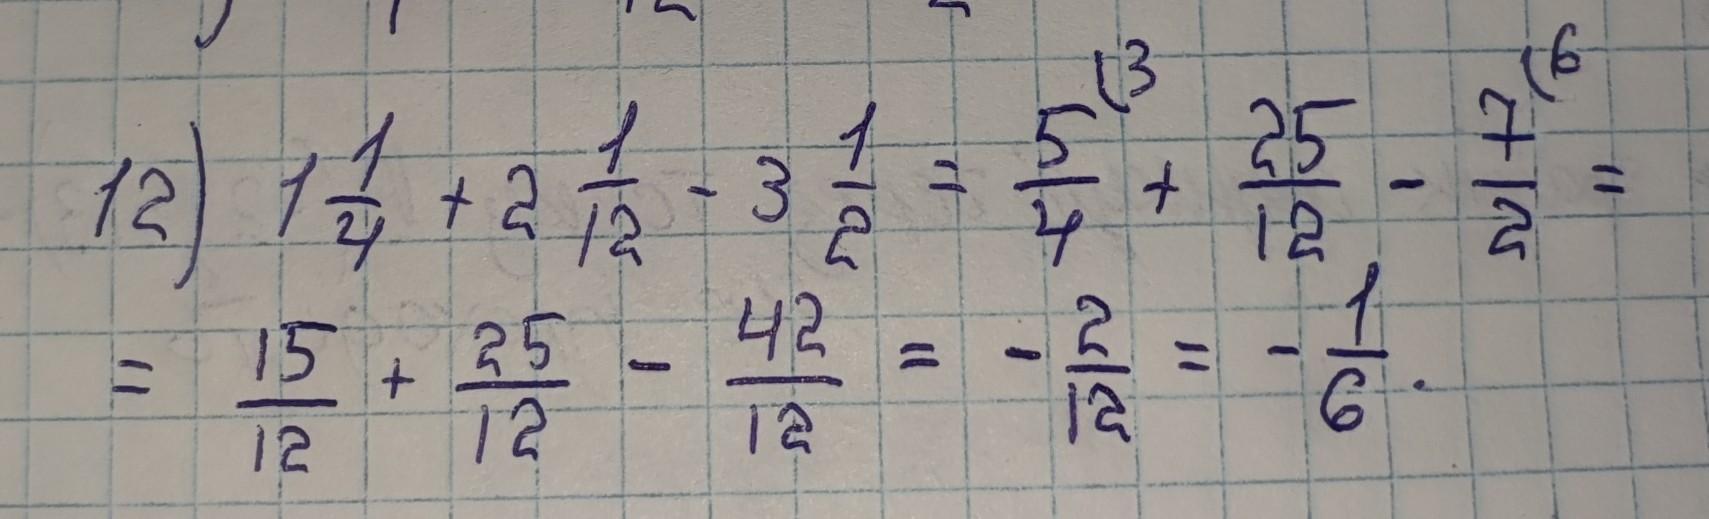 12) 1 1/4 + 2 1/12 - 3 1/2 = 5/4 (3 + 25/12 - 7/2 (6 =
= 15/12 + 25/12 - 42/12 = - 2/12 = - 1/6.